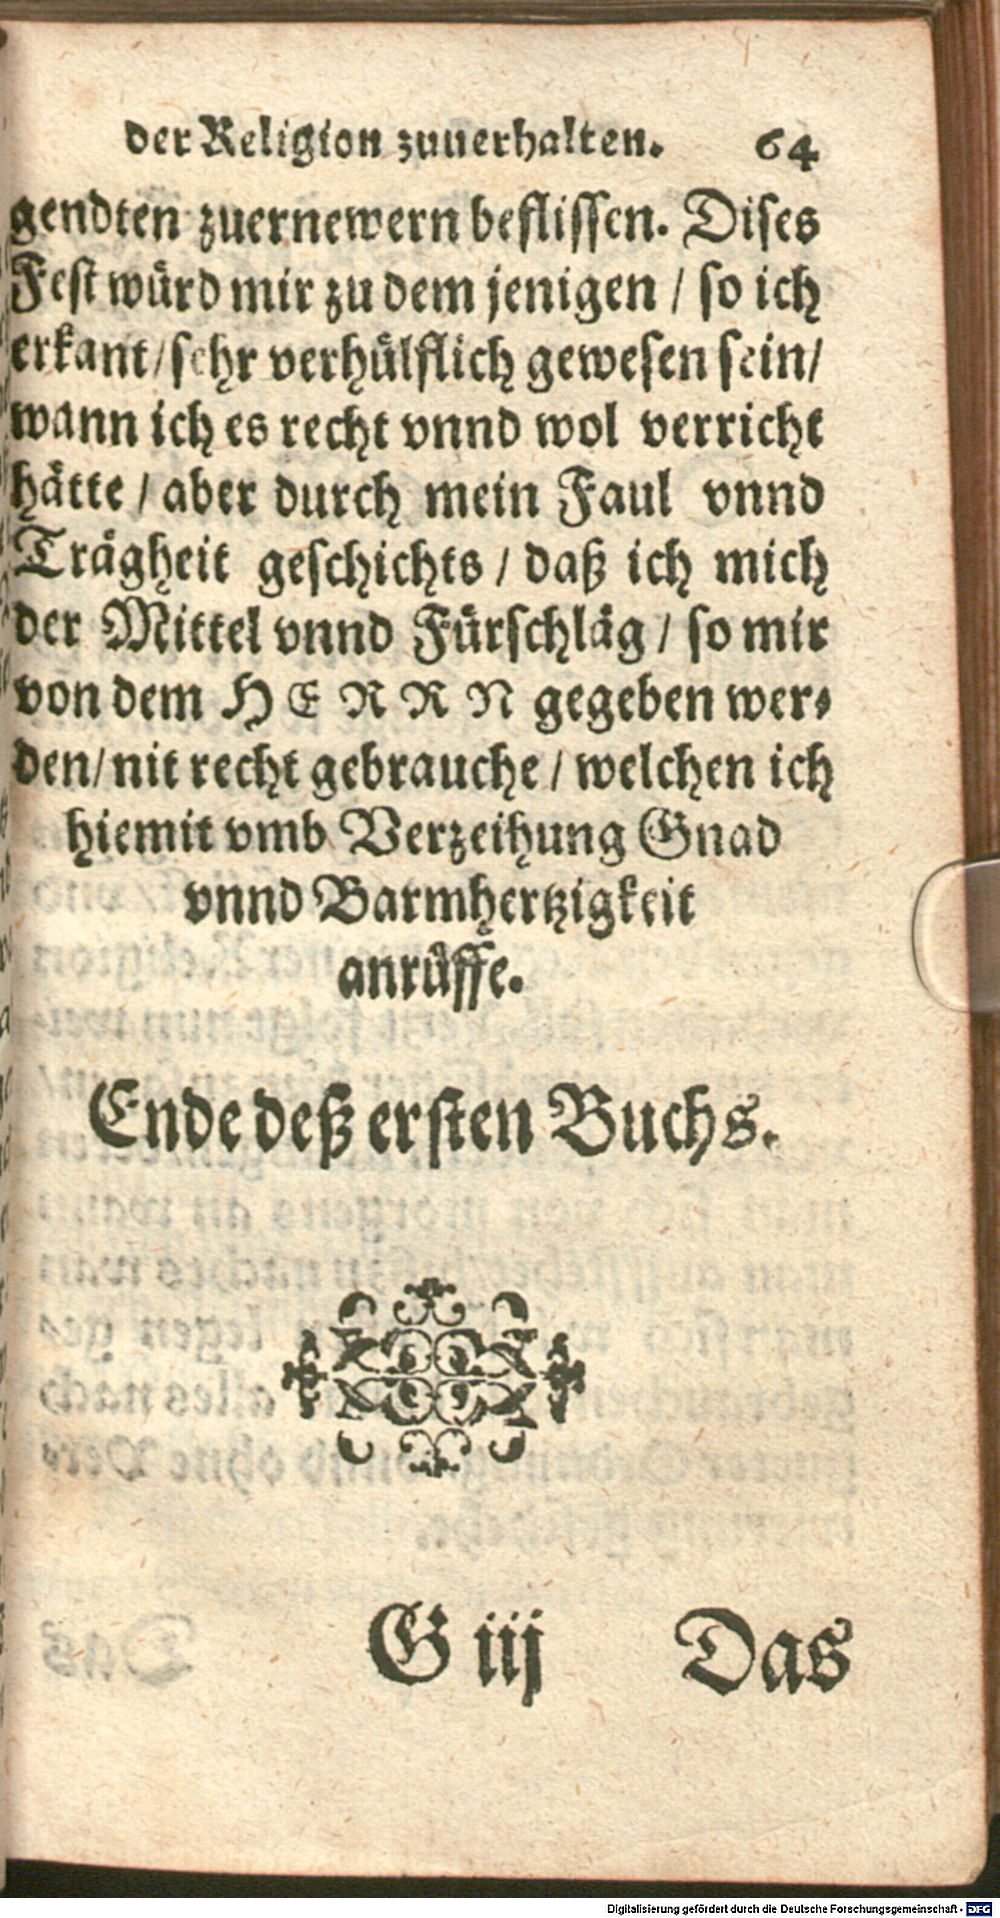 der Religion zuuerhalten. 64
gendten zuernewern beflissen. Dises
Fest würd mir zu dem jenigen / so ich
erkant / sehr verhülflich gewesen sein /
wann ich es recht vnnd wol verricht
hätte / aber durch mein Faul vnnd
Trägheit geschichts / daß ich mich
der Mittel vnnd Fürschläg / so mir
von dem HERRN gegeben wer-
den / nit recht gebrauche / welchen ich
hiemit vmb Verzeihung Gnad
vnnd Barmhertzigkeit
anrüffe.
Ende deß ersten Buchs.
G iij Das
Digitalisierung gefördert durch die Deutsche Forschungsgemeinschaft - DFG